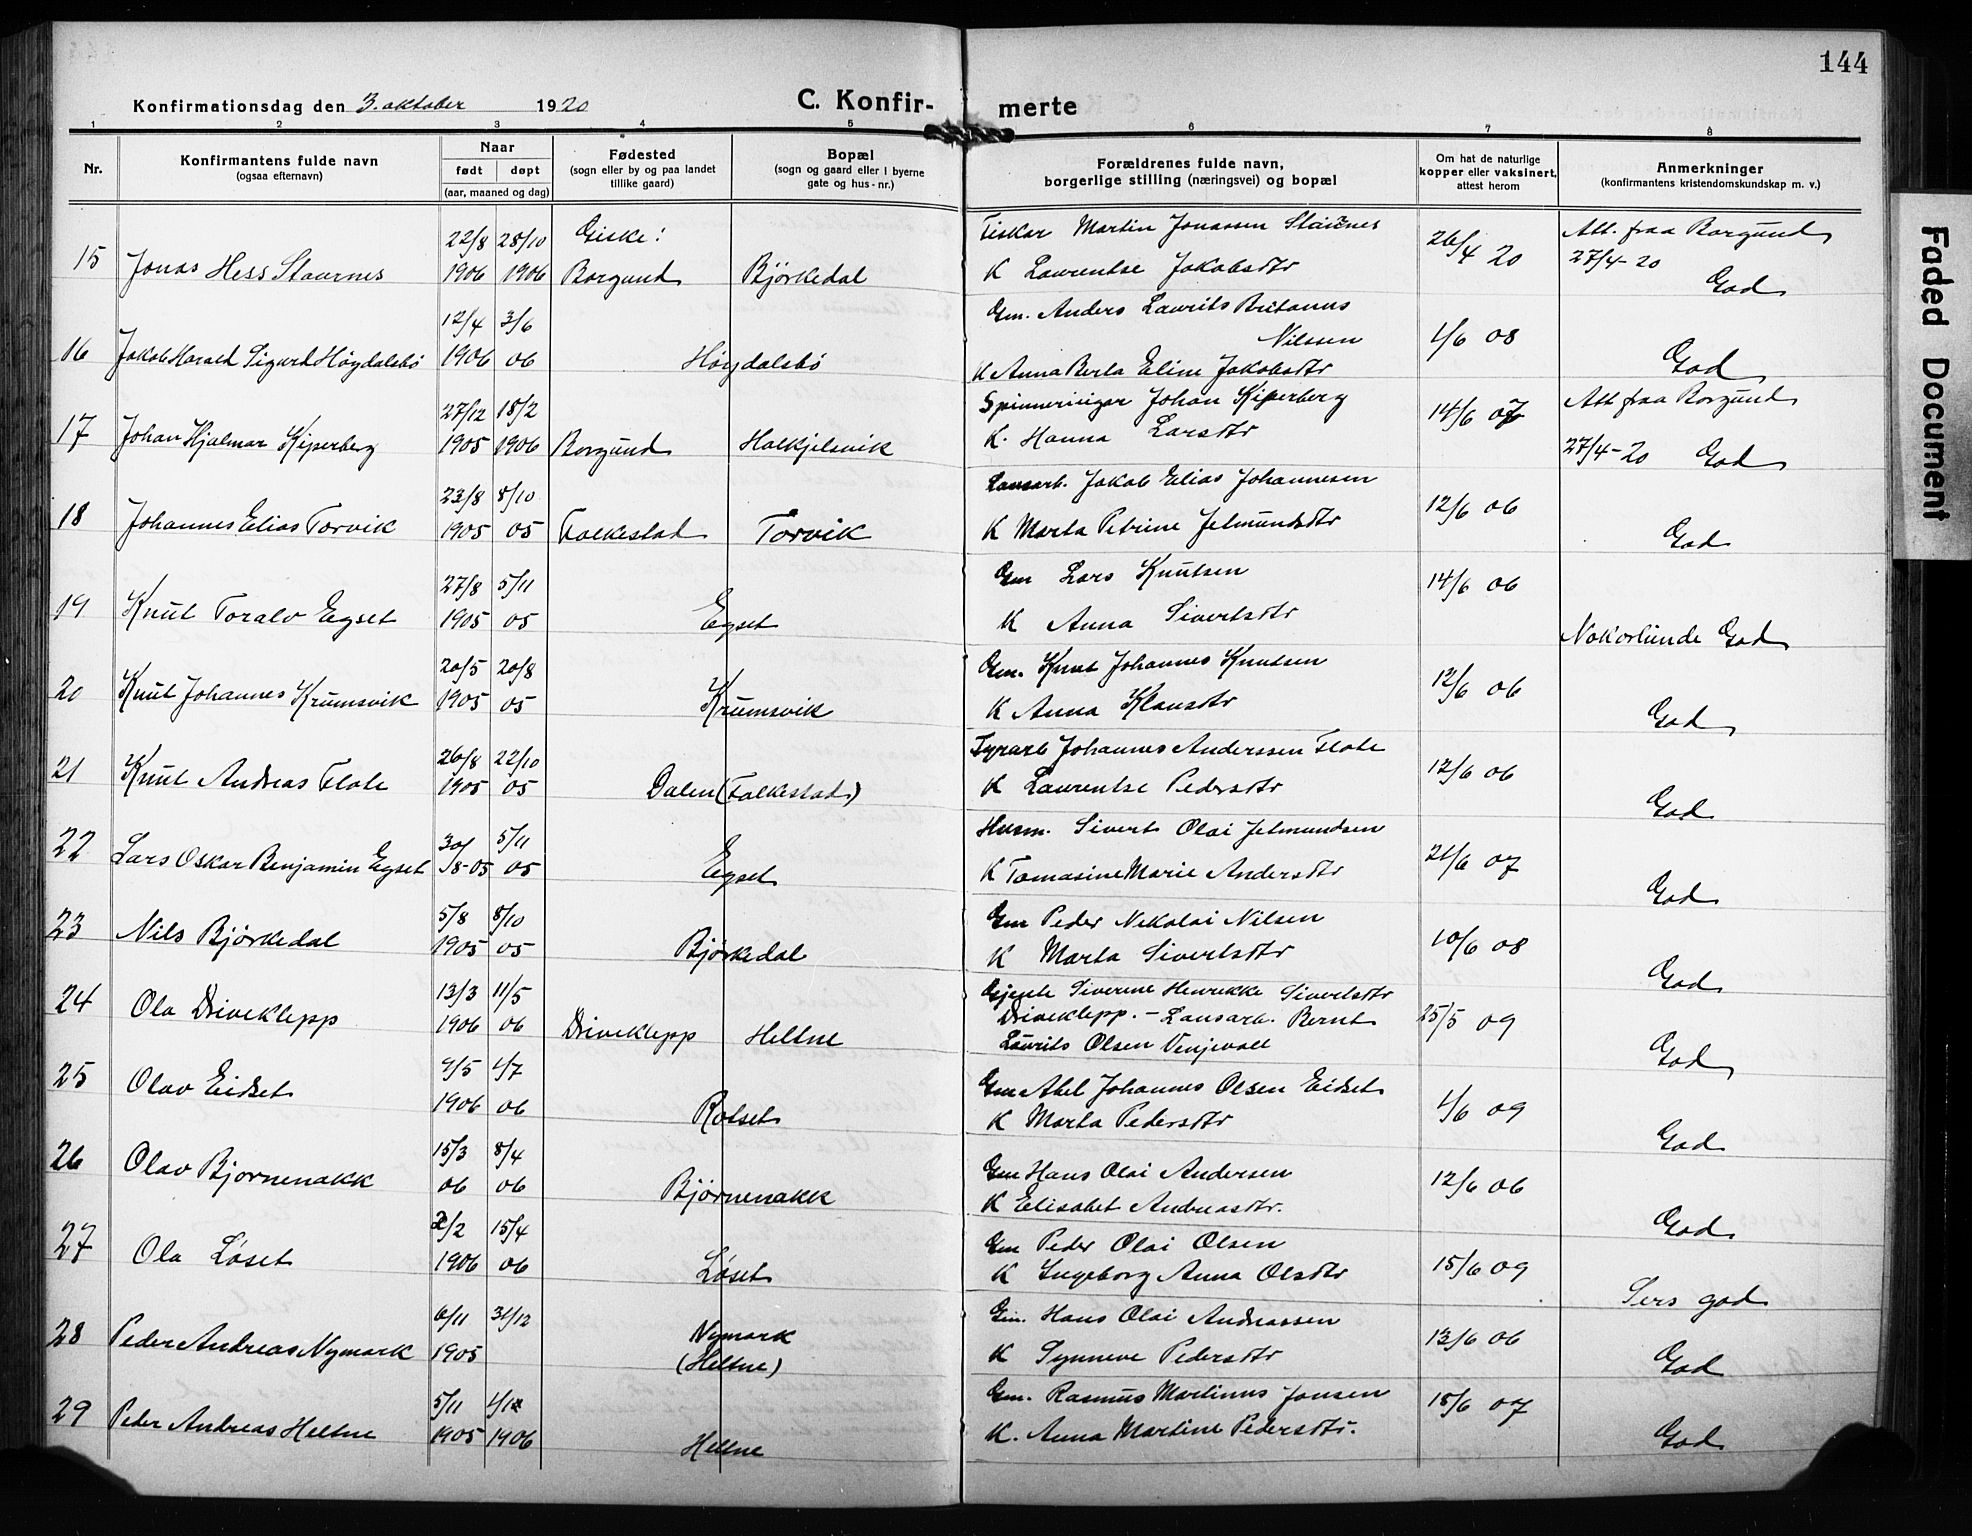 144
Konfirmationsdag den 3. oktober 1920
C. Konfir- merte
1 2 3 4 5 6 7 8
Nr.
Konfirmantens fulde navn
(ogsaa efternavn)
Naar
født døpt
(aar, maaned og dag)
Fødested
(sogn eller by og paa landet
tillike gaard)
Bopæl
(sogn og gaard eller i byerne
gate og hus-nr.)
Forældrenes fulde navn,
borgerlige stilling (næringsvei) og bopæl
Om hat de naturlige
kopper eller vaksinert,
attest herom
Anmerkninger
(konfirmantens kristendomskundskap m. v.)
22/8 28/10 Giske: Fiskar Martin Jonassen Staurnes 26/4 20 Att. fraa Borgund
15 Jonas Hess Staurnes 1906 1906 Borgund Bjørkedal K Laurentse Jakobsdtr 27/4-20 God
12/4 3/6 Gm. Anders Laurits Britanus
Nilsen 1/6 08
16 Jakob Harald Sigurd Høydalsbø 1906 06 Høydalsbø K Anna Berta Eline Jakobsdtr God
27/12 18/2 Spinnerieigar Johan Kiperberg 14/6 07 Att fraa Borgund
17 Johan Hjalmar Kiperberg 1905 1906 Borgund Halkjelsvik K. Hanna Larsdtr 27/4-20 God
23/8 8/10 Lausarb. Jakob Elias Johannesen
18 Johannes Elias Torvik 1905 05 Folkestad Torvik K Marta Petrine Jetmundsdtr 12/6 06 God
27/8 5/11 Gm Lars Knutsen 14/6 06
19 Knut Toralv Egset 1905 05 Egset K Anna Sivertsdtr Nokorlunde God
20/5 20/8 Gm. Knut Johannes Knutsen
20 Knut Johannes Krumsvik 1905 05 Krumsvik K Anna Klausdtr 12/6 06 God
26/8 22/10 Fyrarb Johannes Anderssen Flote
21 Knut Andreas Flote 1905 05 Dalen (Folkestad) K Laurentse Pedersdtr 12/6 06 God
30/ 5/11 Husm. Sivert Olai Jetmundsen
22 Lars Oskar Benjamin Egset 8-05 05 Egset K Tomasine Marie Andersdtr 21/6 07 God
5/8 8/10 Gm Peder Nikolai Nilsen
23 Nils Bjørkedal 1905 05 Bjørkedal K Marta Sivertsdtr 10/6 08 God
13/3 11/5 Gjente Siverine Henrikke Sivertsdtr
24 Ola Driveklepp 1906 06 Driveklepp Heltne Driveklepp. - Lausarb. Bernt 25/5 09
Laurits Olsen Venjevoll God
9/5 1/7 Gm Abel Johannes Olsen Eidset
25 Olav Eidset 1906 06 Rotset K Marta Pedersdtr 1/6 09 God
15/3 8/4 Gm Hans Olai Andersen
26 Olav Bjørnenakk 06 06 Bjørnenakk K Elisabet Andreasdtr. 12/6 06 God
2/2 15/4 Gm Peder Olai Olsen
27 Ola Løset 1906 06 Løset K Ingeborg Anna Olsdtr 15/6 09 Sers god
6/11 31/12 Nymark Gm. Hans Olai Andreassen
28 Peder Andreas Nymark 1905 (Heltne) K Synneve Pedersdtr 13/6 06 God
5/11 1/1 Gm. Rasmus Martinus Jonsen 18/6 07
29 Peder Andreas Heltne 1905 1906 Heltne K. Anna Martine Pedersdtr. God
Faded Document